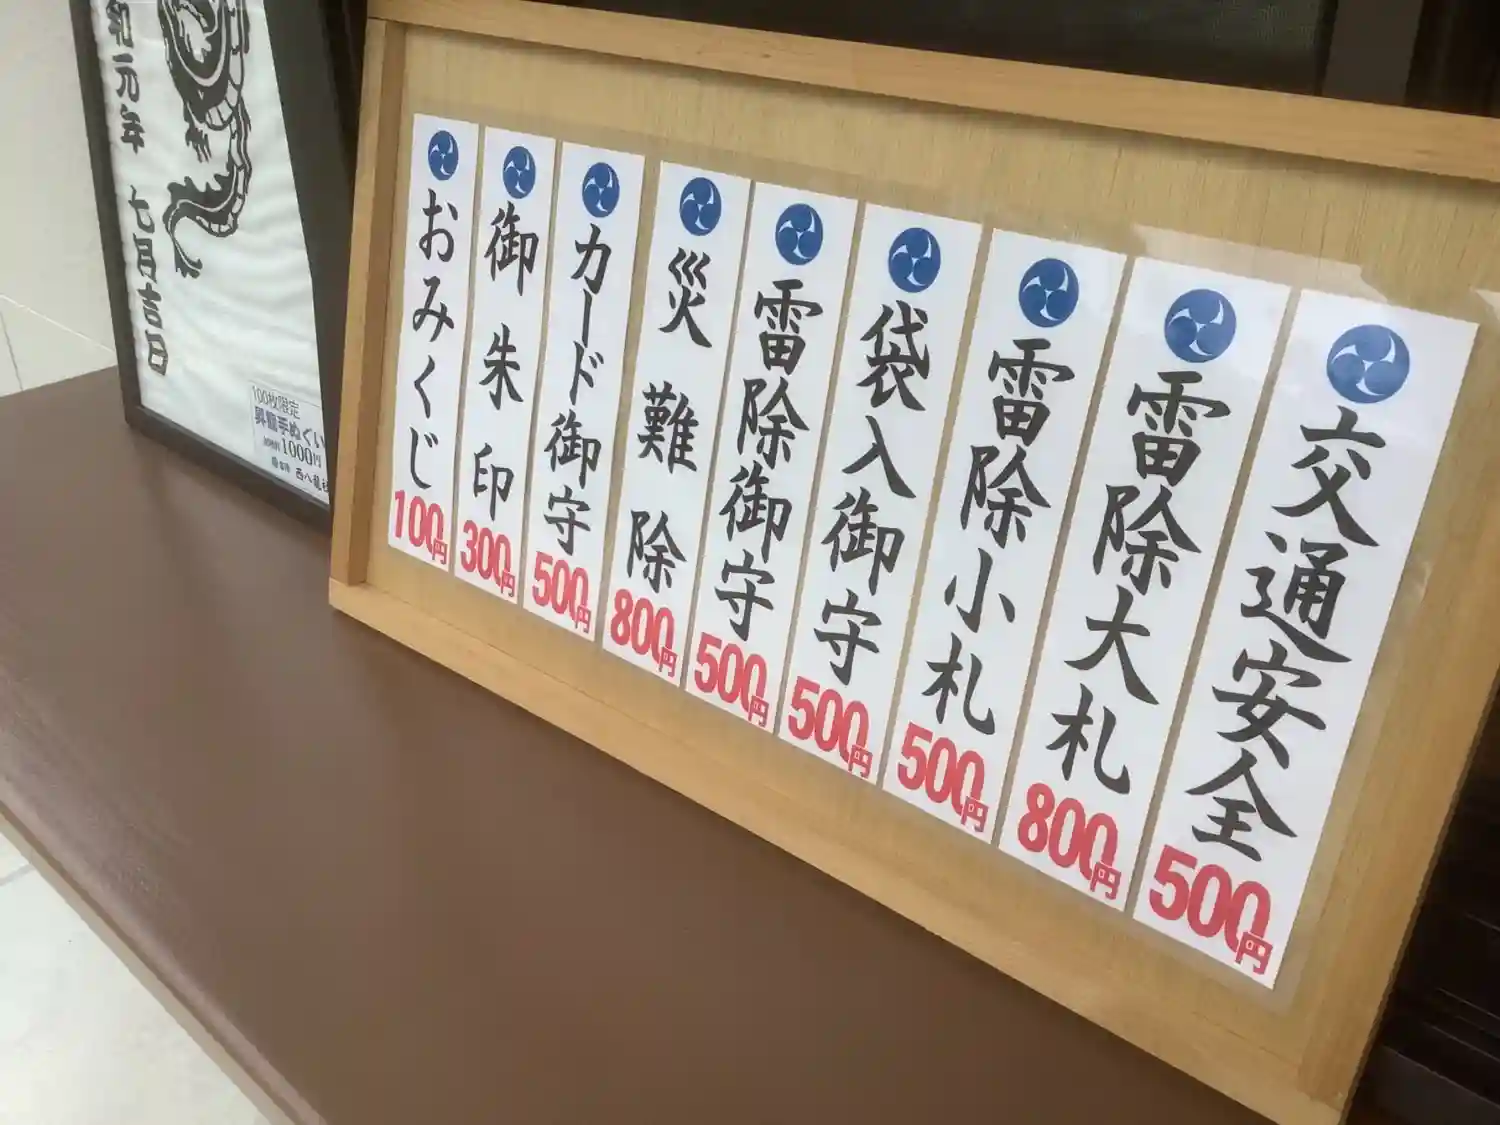 交通安全
500円
雷除大札
800円
雷除小札
500円
袋入御守
500円
雷除御守
500円
災難除
800円
カード御守
500円
御朱印
300円
おみくじ
100円
和元年 七月吉日
100枚限定
昇龍手ぬぐい
1000円